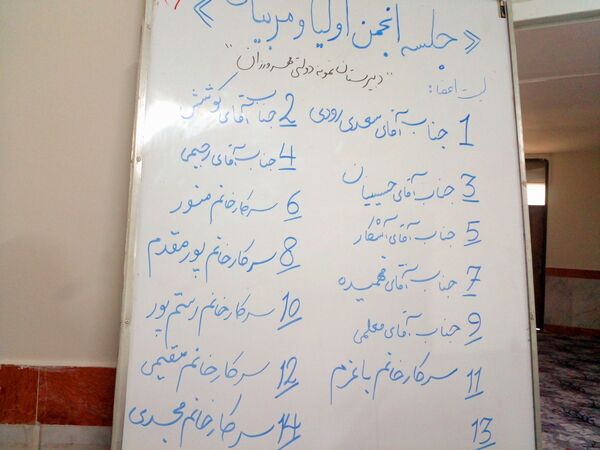 «جلسه انجمن اولیا و مربیان»
"دبیرستان نمونه دولتی
لیست اعضا:
1 جناب آقای سعدی رودی
2 جناب آقای کوشش
3 جناب آقای حسیبیان
4 جناب آقای رحیمی
5 جناب آقای آشکار
6 سرکار خانم منور
7 جناب آقای فهمیده
8 سرکار خانم پور مقدم
9 جناب آقای معلمی
10 سرکار خانم رستم پور
11 سرکار خانم باعزم
12 سرکار خانم مقیمی
13
14 سرکار خانم مجدی